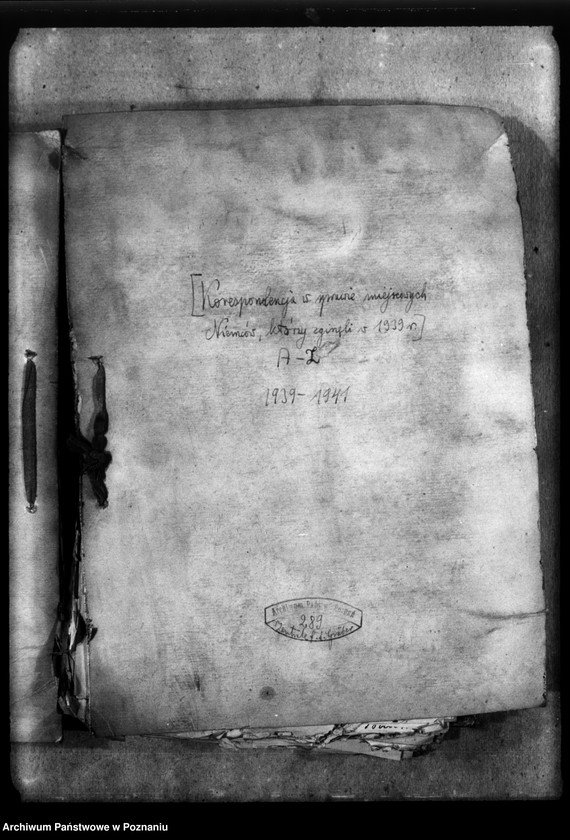 [Korespondencja w sprawie miejscowych
Niemców, którzy zginęli w 1939 r.]
A-Z
1939-1941
289
Archiwum Państwowe w Poznaniu